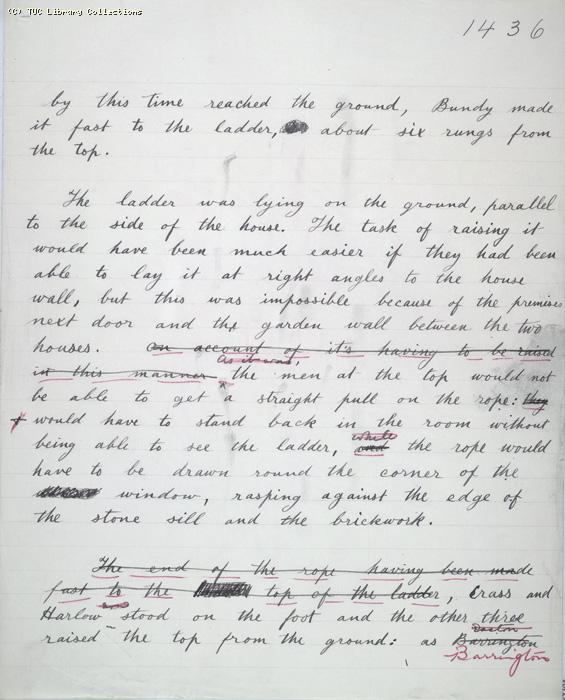 (C) TUC Library Collections
1436
by this time reached the ground, Bundy made
it fast to the ladder, about six rungs from
the top.
The ladder was lying on the ground, parallel
to the side of the house. The task of raising it
would have been much easier if they had been
able to lay it at right angles to the house
wall, but this was impossible because of the premises
next door and the garden wall between the two
houses. on account of it's having to be raised
as it was,
in this manner the men at the top would not
be able to get a straight pull on the rope: they
+ would have to stand back in the room without
while
being able to see the ladder, and the rope would
have to be drawn round the corner of the
window, rasping against the edge of
the stone sill and the brickwork.
The end of the rope having been made
fast to the top of the ladder, Crass and
Harlow stood on the foot and the other three
raised the top from the ground: as Barrington
Barrington